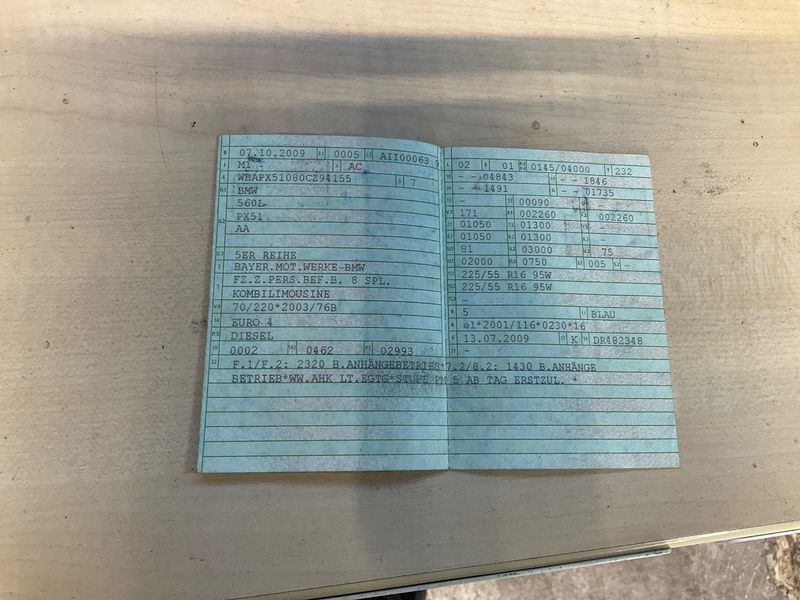 07.10.2009 0005 AII00063 9
M1 AC
WBAPX51080CZ94155 7
BMW
560L
PX51
AA
5ER REIHE
BAYER.MOT.WERKE-BMW
FZ.Z.PERS.BEF.B. 8 SPL.
KOMBILIMOUSINE
70/220*2003/76B
EURO 4
DIESEL
0002 0462 02993
02 01 0145/04000 232
- - 04843 - - 1846
- - 1491 - - 01735
- 00090 -
171 002260 002260
01050 01300 -
01050 01300 -
81 03000 75
02000 0750 005 -
225/55 R16 95W
225/55 R16 95W
-
5 BLAU
e1*2001/116*0230*16
13.07.2009 K DR482348
-
F.1/F.2: 2320 B.ANHÄNGEBETRIEB*7.2/8.2: 1430 B.ANHÄNGE
BETRIEB*WW.AHK LT.EGTG*STUFE PM 5 AB TAG ERSTZUL. *